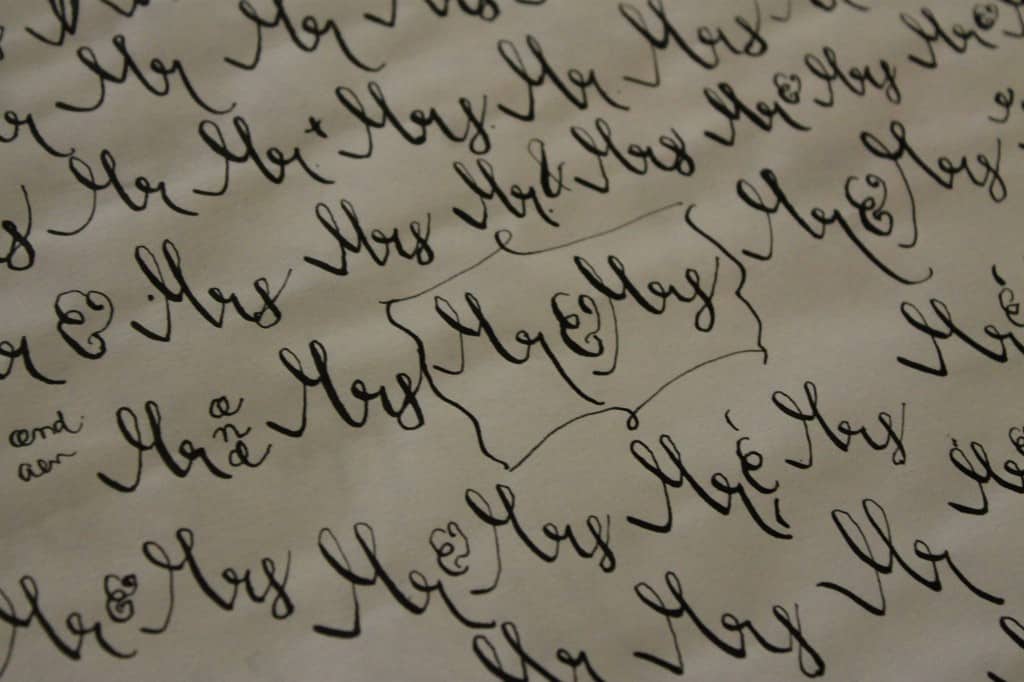 Mr Mr Mrs
Mr Mr Mrs
Mr Mr + Mrs Mr & Mrs Mr &
Mr & Mrs Mrs Mr & Mrs Mr & Mrs
Mr & Mrs Mr & Mrs Mr &
and Mr and Mrs
aen
Mr & Mrs Mr & Mrs Mr & Mrs Mr &
Mr Mrs Mr